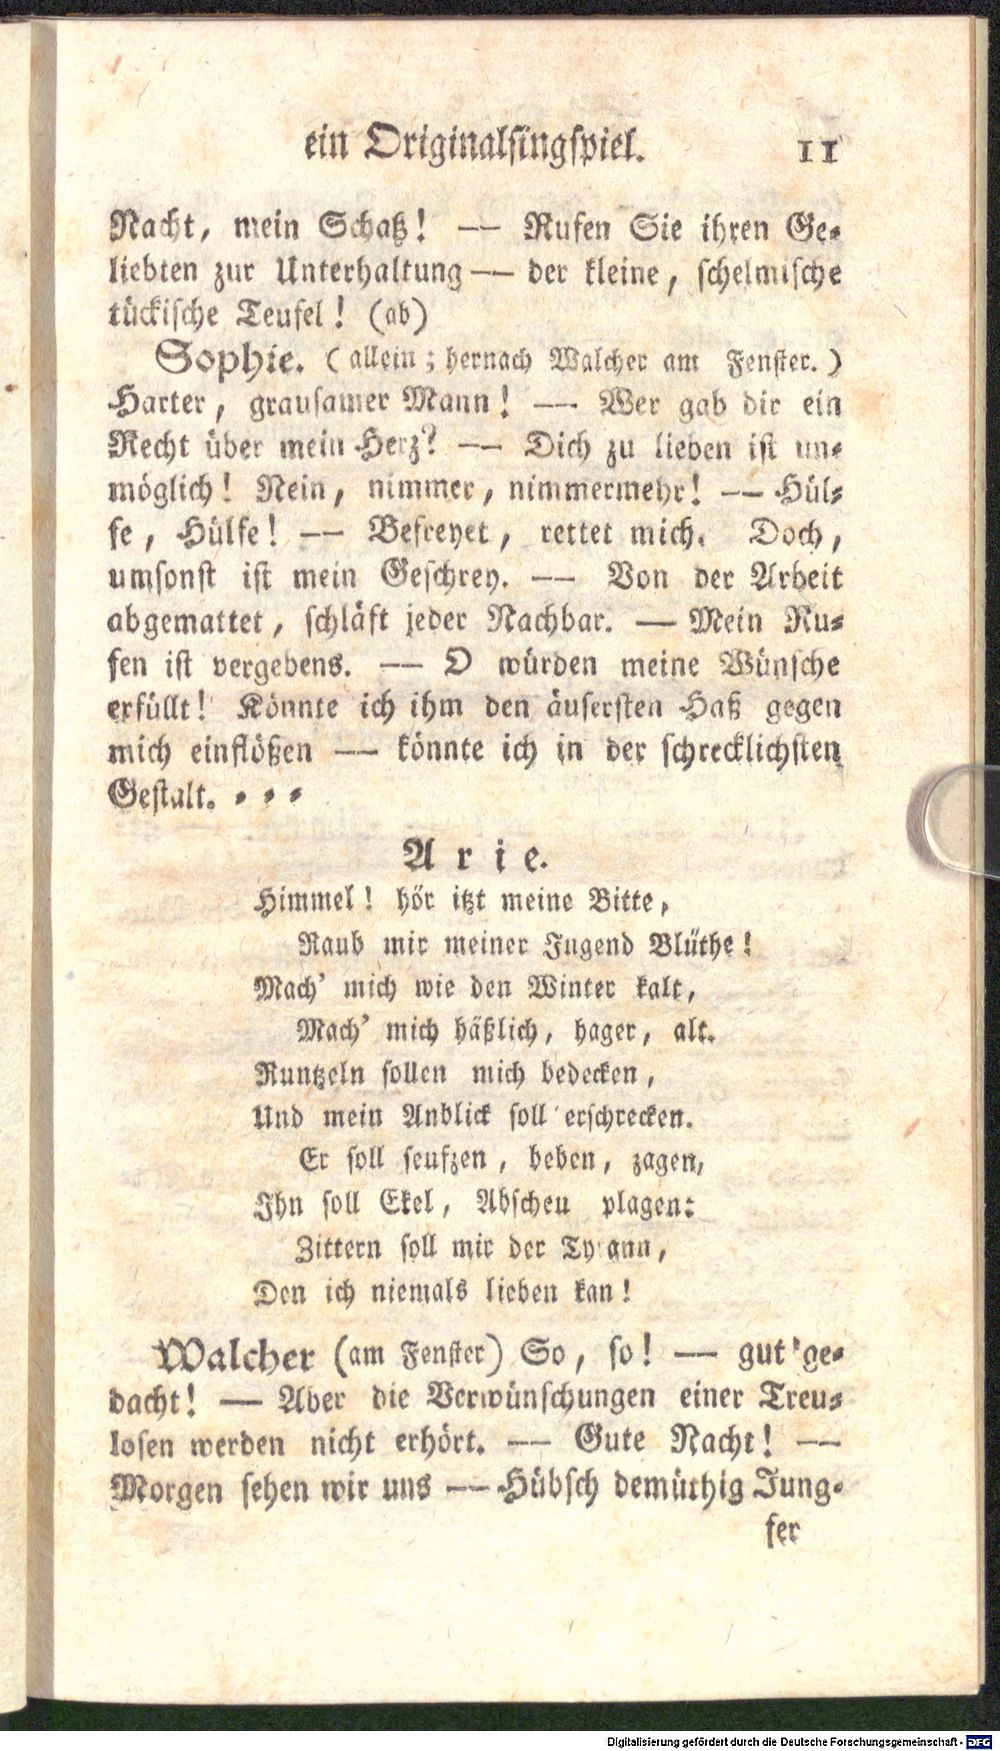 ein Originalsingspiel. 11
Nacht, mein Schatz! — Rufen Sie ihren Ge-
liebten zur Unterhaltung — der kleine, schelmische
tückische Teufel! (ab)
Sophie. (allein; hernach Walcher am Fenster.)
Harter, grausamer Mann! — Wer gab dir ein
Recht über mein Herz? — Dich zu lieben ist un-
möglich! Nein, nimmer, nimmermehr! — Hül-
fe, Hülfe! — Befreyet, rettet mich. Doch,
umsonst ist mein Geschrey. — Von der Arbeit
abgemattet, schläft jeder Nachbar. — Mein Ru-
fen ist vergebens. — O würden meine Wünsche
erfüllt! Könnte ich ihm den äusersten Haß gegen
mich einflößen — könnte ich in der schrecklichsten
Gestalt. - - -
Arie.
Himmel! hör itzt meine Bitte,
Raub mir meiner Jugend Blüthe!
Mach' mich wie den Winter kalt,
Mach' mich häßlich, hager, alt.
Runtzeln sollen mich bedecken,
Und mein Anblick soll erschrecken.
Er soll seufzen, beben, zagen,
Ihn soll Ekel, Abscheu plagen:
Zittern soll mir der Tyrann,
Den ich niemals lieben kan!
Walcher (am Fenster) So, so! — gut ge-
dacht! — Aber die Verwünschungen einer Treu-
losen werden nicht erhört. — Gute Nacht! —
Morgen sehen wir uns — Hübsch demüthig Jung-
fer
Digitalisierung gefördert durch die Deutsche Forschungsgemeinschaft - DFG